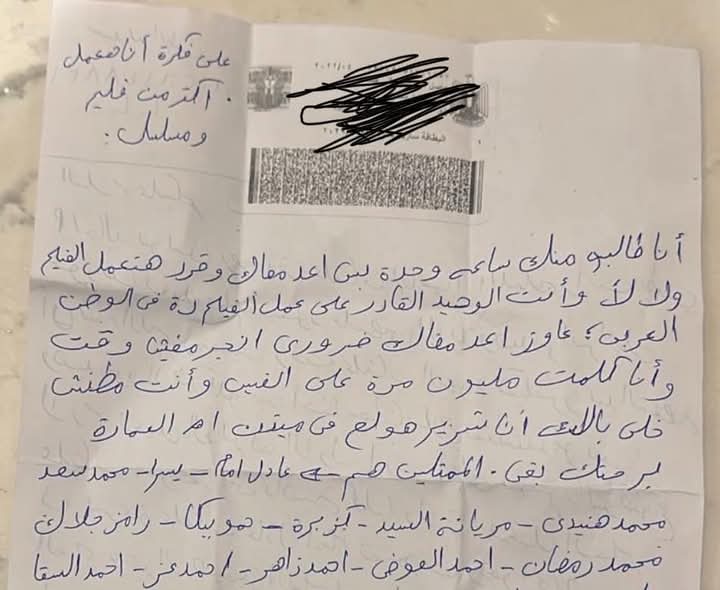 على فكرة أنا هعمل
أكتر من فليم
ومسلسل.
٢٠٢٢/٠٤
البطاقة سار
أنا طالب منك ساعه وحدة بس اعد معاك وقرر هتعمل الفيلم
ولا لأ وأنت الوحيد القادر على عمل الفيلم دة فى الوطن
العربى؛ عاوز اعد معاك ضرورى انجر مفيش وقت
وأنا كلمت مليون مرة على الفيس وأنت مطنش
خلى بالك أنا شرير هولع فى ام العمارة
براحتك بقى. الممثلين هم عادل امام - يسرا - محمد سعد
محمد هنيدى - مريانة السيد - كزبرة - حمو بيكا - رامز جلال
محمد رمضان - احمد العوضى - احمد زاهر - احمد عز - احمد السقا